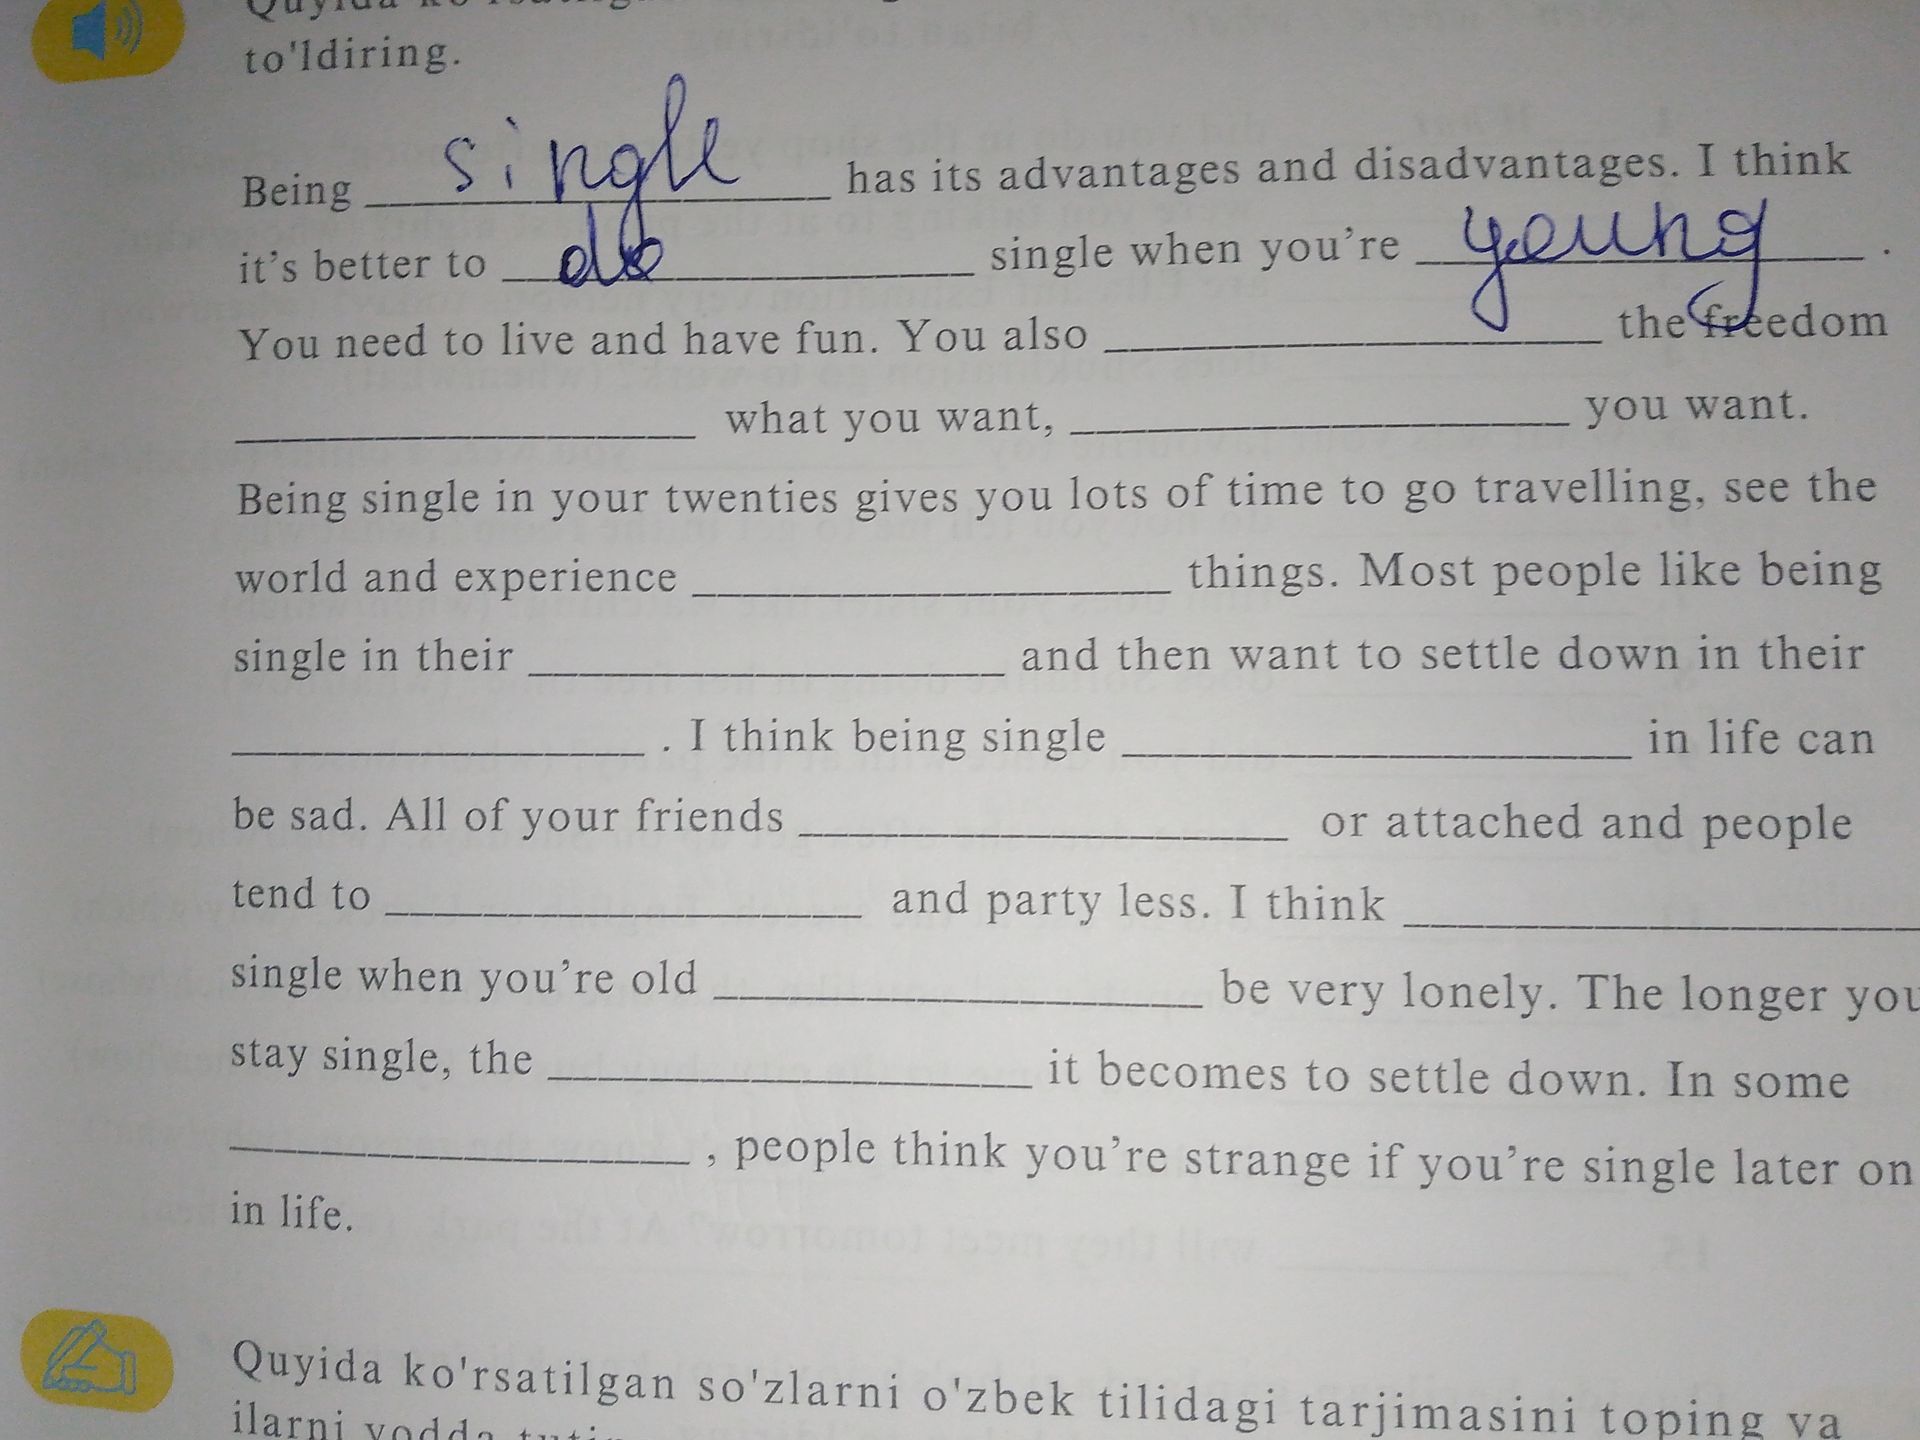 to'ldiring.
Being single has its advantages and disadvantages. I think
it's better to do single when you're young .
You need to live and have fun. You also ____ the freedom
____ what you want, ____ you want.
Being single in your twenties gives you lots of time to go travelling, see the
world and experience ____ things. Most people like being
single in their ____ and then want to settle down in their
____ . I think being single ____ in life can
be sad. All of your friends ____ or attached and people
tend to ____ and party less. I think ____
single when you're old ____ be very lonely. The longer you
stay single, the ____ it becomes to settle down. In some
____ , people think you're strange if you're single later on
in life.
Quyida ko'rsatilgan so'zlarni o'zbek tilidagi tarjimasini toping va